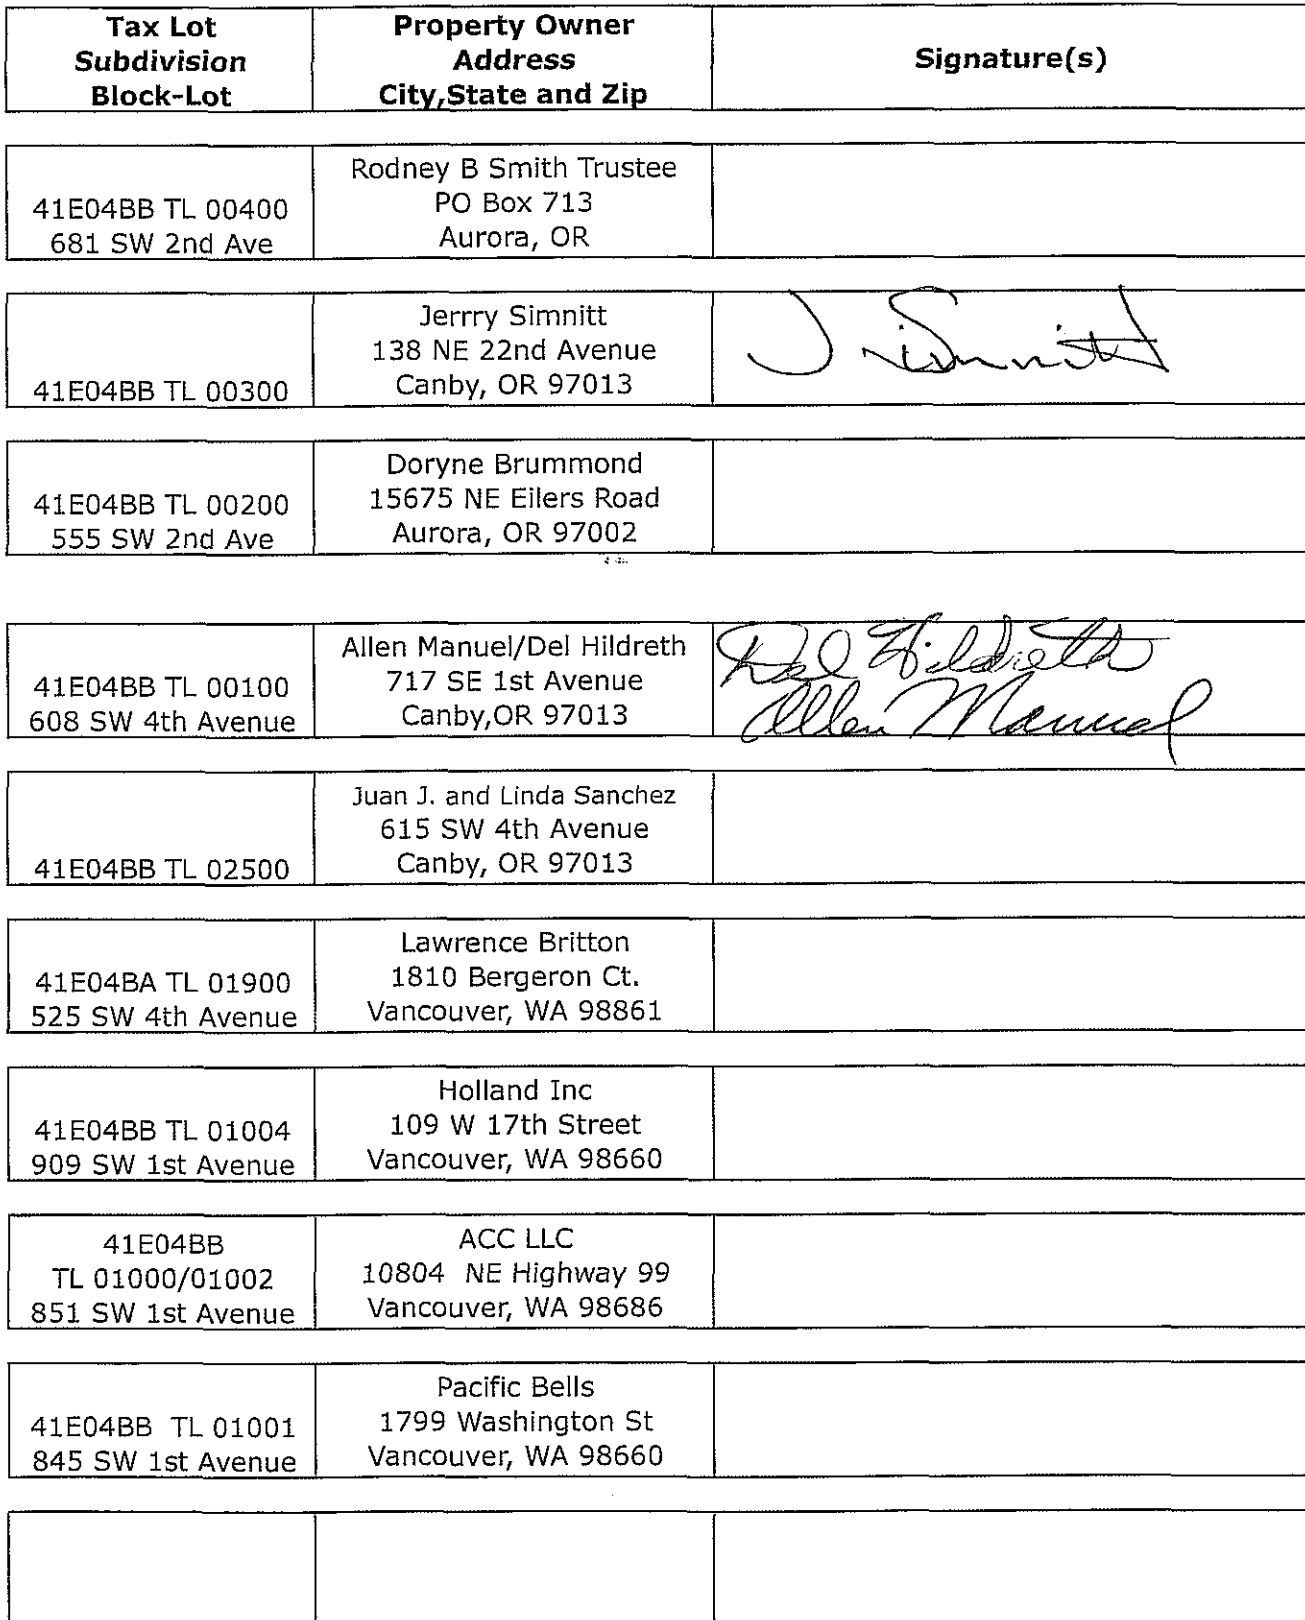 Tax Lot
Subdivision
Block-Lot
Property Owner
Address
City,State and Zip
Signature(s)
41E04BB TL 00400
681 SW 2nd Ave
Rodney B Smith Trustee
PO Box 713
Aurora, OR
41E04BB TL 00300
Jerrry Simnitt
138 NE 22nd Avenue
Canby, OR 97013
J Simnitt
41E04BB TL 00200
555 SW 2nd Ave
Doryne Brummond
15675 NE Eilers Road
Aurora, OR 97002
41E04BB TL 00100
608 SW 4th Avenue
Allen Manuel/Del Hildreth
717 SE 1st Avenue
Canby,OR 97013
Del Hildreth
Allen Manuel
41E04BB TL 02500
Juan J. and Linda Sanchez
615 SW 4th Avenue
Canby, OR 97013
41E04BA TL 01900
525 SW 4th Avenue
Lawrence Britton
1810 Bergeron Ct.
Vancouver, WA 98861
41E04BB TL 01004
909 SW 1st Avenue
Holland Inc
109 W 17th Street
Vancouver, WA 98660
41E04BB
TL 01000/01002
851 SW 1st Avenue
ACC LLC
10804 NE Highway 99
Vancouver, WA 98686
41E04BB TL 01001
845 SW 1st Avenue
Pacific Bells
1799 Washington St
Vancouver, WA 98660